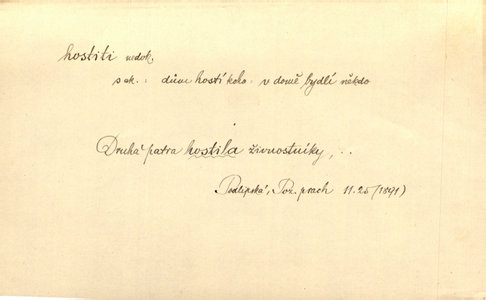 hostiti nedok.
s ak.: dům hostí koho: v domě bydlí někdo
Druhá patra hostila živnostníky, ..
Podlipská, Poz. prach 11.25 (1891)